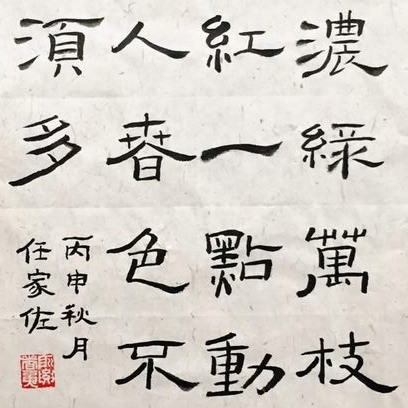 濃緑萬枝
紅一點動
人春色不
湏多
丙申秋月
任家佐